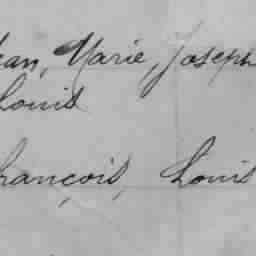 ean, Marie, Joseph
Louis
François, Louis